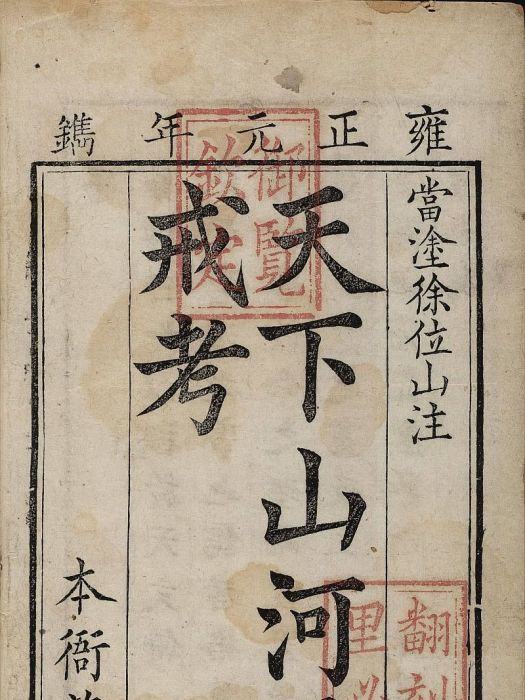 雍正元年鐫
當塗徐位山注
天下山河
戒考
本衙
御覽
欽定
翻刻
里